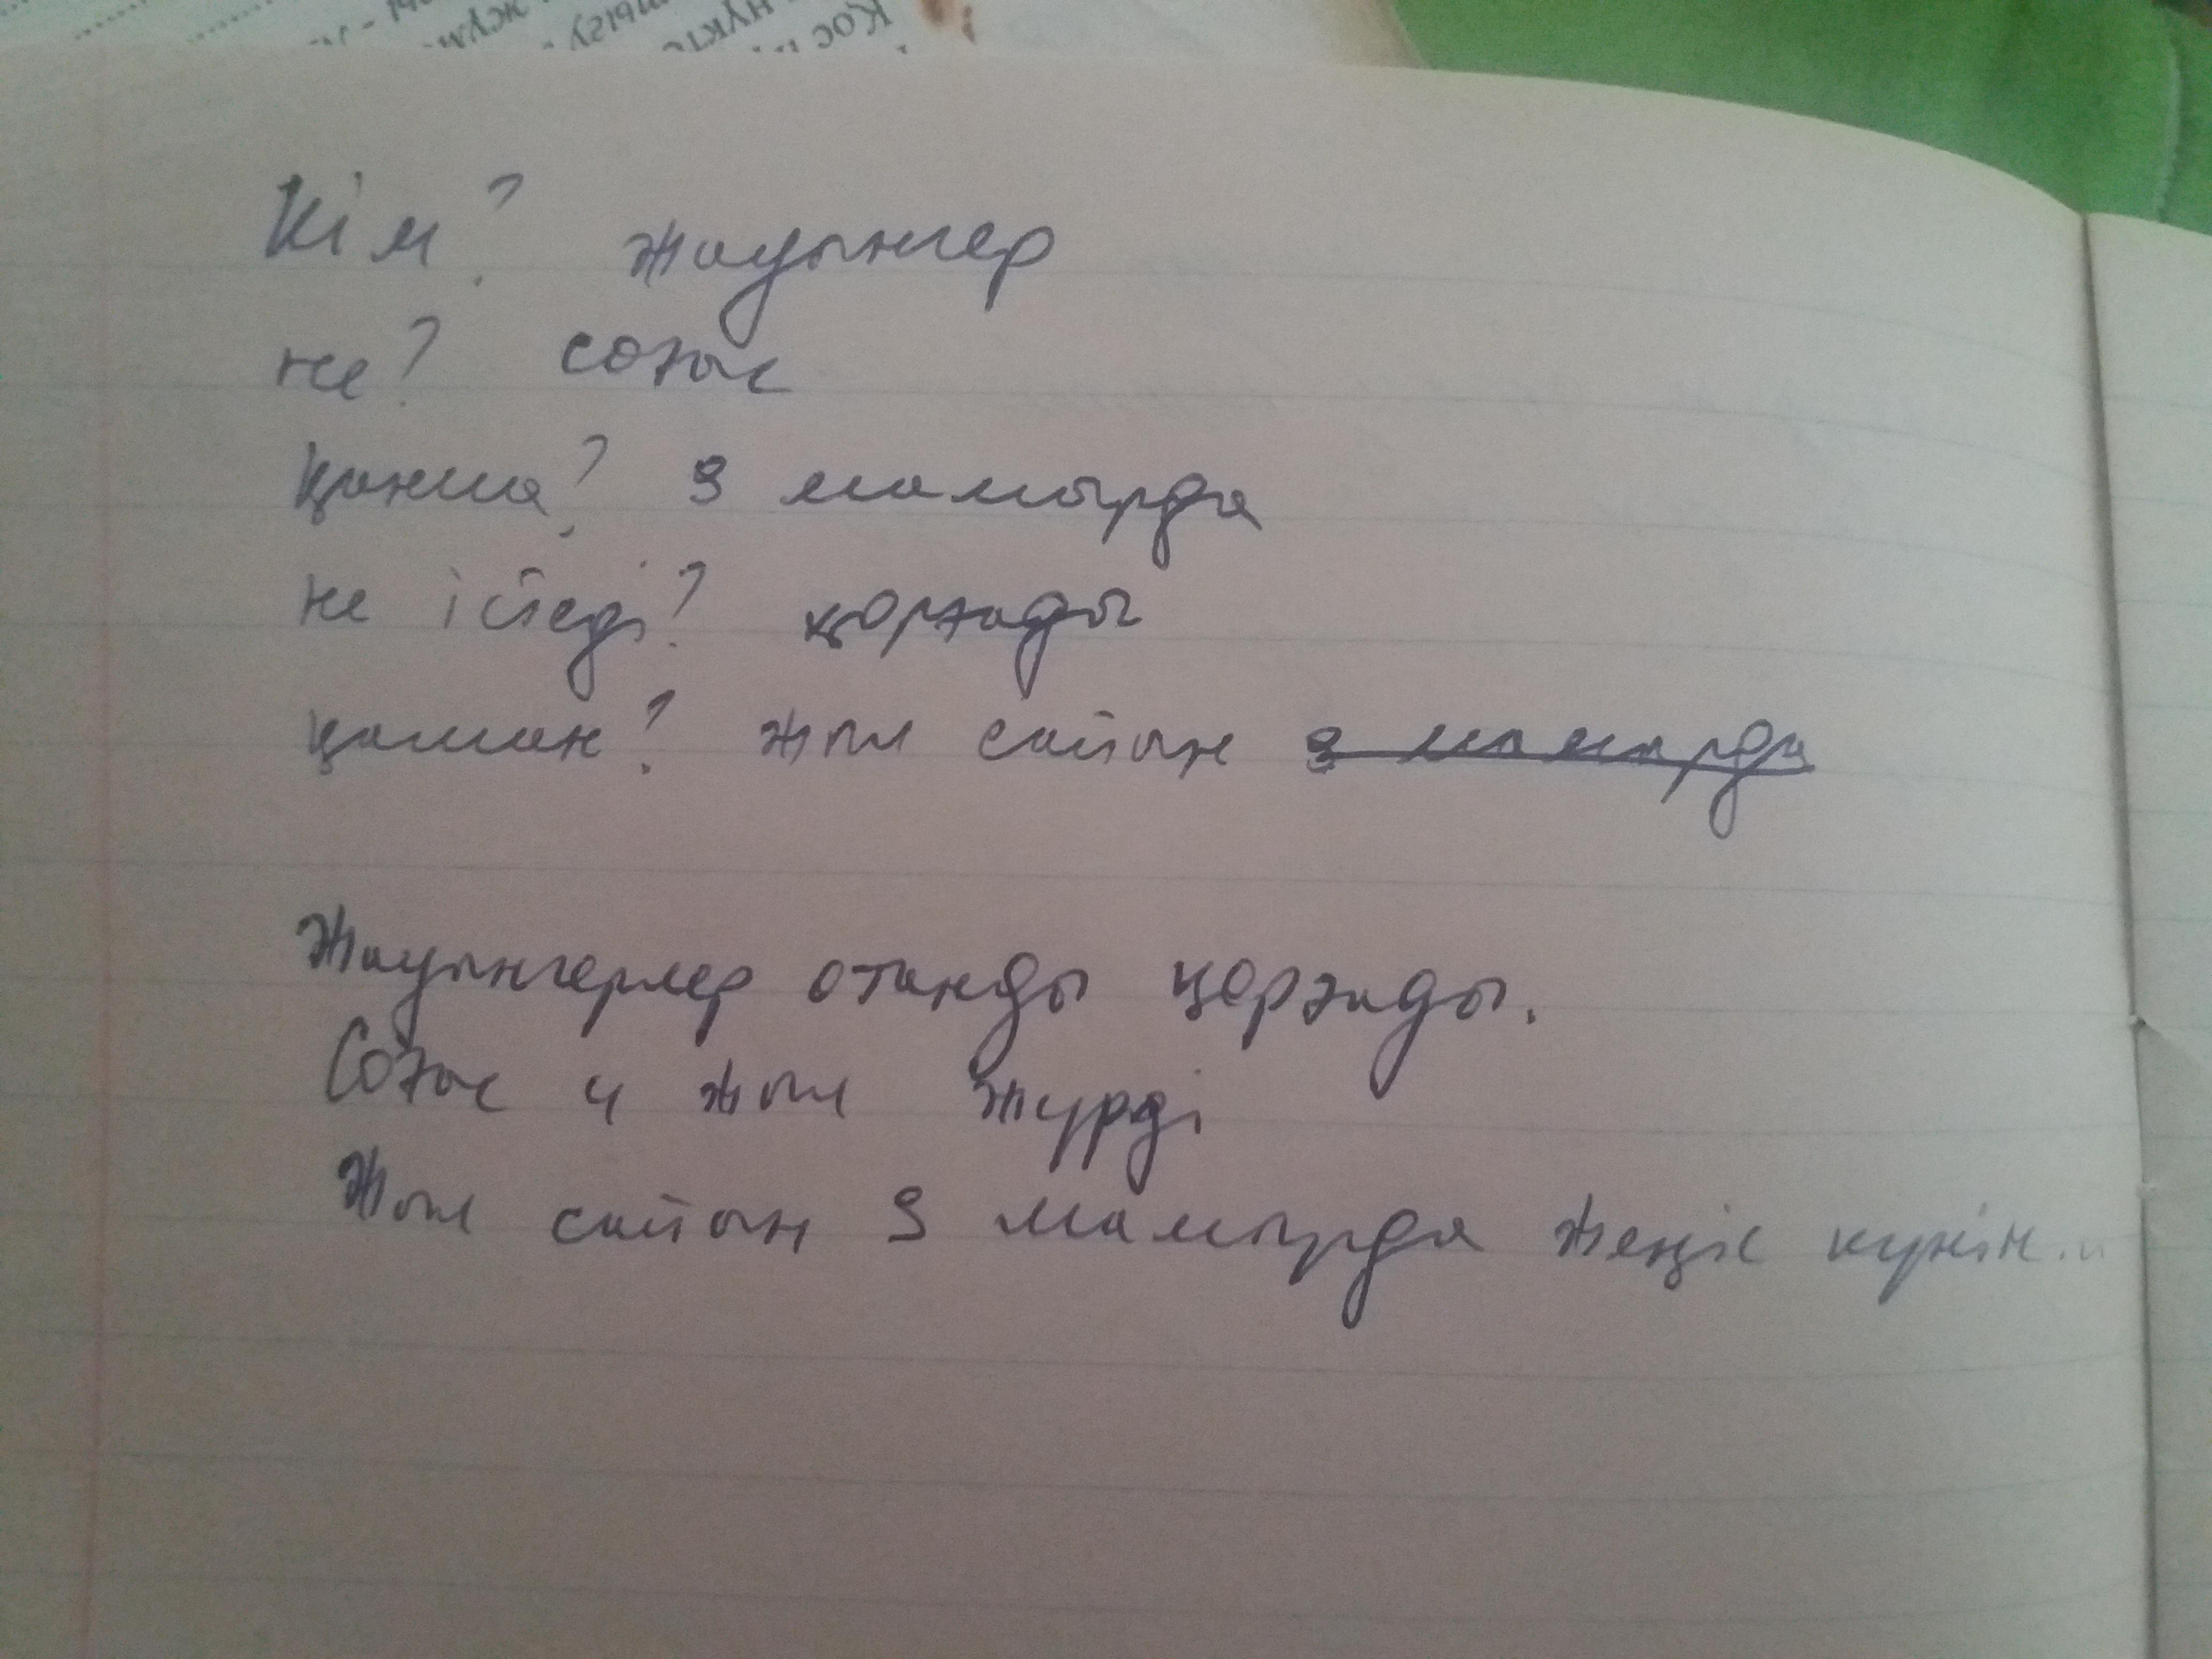 Қос нүкте
Кім? жауынгер
не? соғыс
қанша? 9 мамырда
не істеді? қорғады
қашан? жыл сайын 9 мамырда
Жауынгерлер отанды қорғады.
Соғыс 4 жыл жүрді
Жыл сайын 9 мамырда жеңіс күнін...